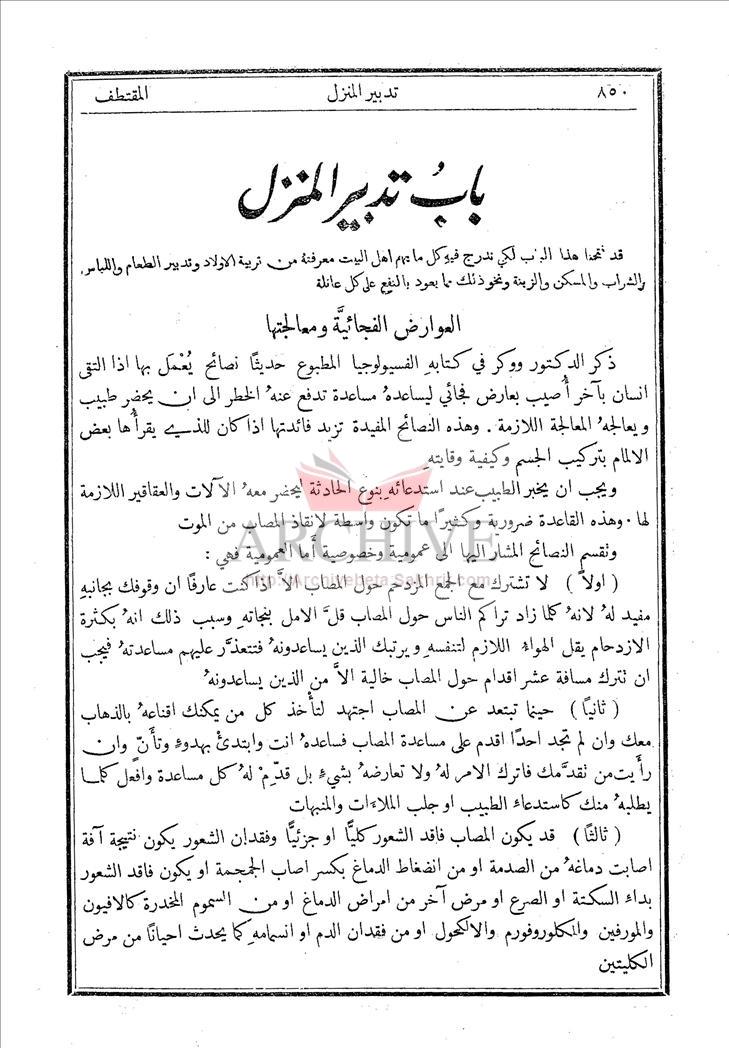 ٨٥٠ تدبير المنزل المقتطف
بابُ تدبير المنزل
قد فتحنا هذا الباب لكي ندرج فيهِ كل ما يهم اهل البيت معرفتهُ من تربية الاولاد وتدبير الطعام واللباس
والشراب والمسكن والزينة ونحو ذلك مما يعود بالنفع على كل عائلة
العوارض الفجائيَّة ومعالجتها
ذكر الدكتور ووكر في كتابهِ الفسيولوجيا المطبوع حديثًا نصائح يُعْمَل بها اذا التقى
انسان بآخر أُصيب بعارض فجائي ليساعدهُ مساعدة تدفع عنهُ الخطر الى ان يحضر طبيب
ويعالجهُ المعالجة اللازمة . وهذه النصائح المفيدة تزيد فائدتها اذا كان للذي يقرأُها بعض
الالمام بتركيب الجسم وكيفية وقايتهِ
ويجب ان يخبر الطبيب عند استدعائهِ بنوع الحادثة ليحضر معهُ الآلات والعقاقير اللازمة
لها . وهذه القاعدة ضرورية وكثيرًا ما تكون واسطة لانقاذ المصاب من الموت
ARCHIVE
وتقسم النصائح المشار اليها الى عمومية وخصوصية أَما العمومية فهي :
http://Archivebeta.Sakhrit.com
( اولاً ) لا تشترك مع الجمع المزدحم حول المصاب الاَّ اذا كنت عارفًا ان وقوفك بجانبهِ
مفيد لهُ لانهُ كلما زاد تراكم الناس حول المصاب قلَّ الامل بنجاتهِ وسبب ذلك انهُ بكثرة
الازدحام يقل الهواءُ اللازم لتنفسهِ ويرتبك الذين يساعدونهُ فتتعذَّر عليهم مساعدتهُ فيجب
ان نترك مسافة عشر اقدام حول المصاب خالية الاَّ من الذين يساعدونهُ
( ثانيًا ) حينما تبتعد عن المصاب اجتهد لتأخذ كل من يمكنك اقناعهُ بالذهاب
معك وان لم تجد احدًا اقدم على مساعدة المصاب فساعدهُ انت وابتدئْ بهدوءٍ وتأنٍّ وان
رأَيت من تقدَّمك فاترك الامر لهُ ولا تعارضهُ بشيءٍ بل قدِّمْ لهُ كل مساعدة وافعل كلما
يطلبهُ منك كاستدعاءِ الطبيب او جلب الملاءَات والمنبهات
( ثالثًا ) قد يكون المصاب فاقد الشعور كليًّا او جزئيًّا وفقدان الشعور يكون نتيجة آفة
اصابت دماغهُ من الصدمة او من انضغاط الدماغ بكسر اصاب الجمجمة او يكون فاقد الشعور
بداء السكتة او الصرع او مرض آخر من امراض الدماغ او من السموم المخدرة كالافيون
والمورفين والكلوروفورم والالكحول او من فقدان الدم او انسمامهِ كما يحدث احيانًا من مرض
الكليتين